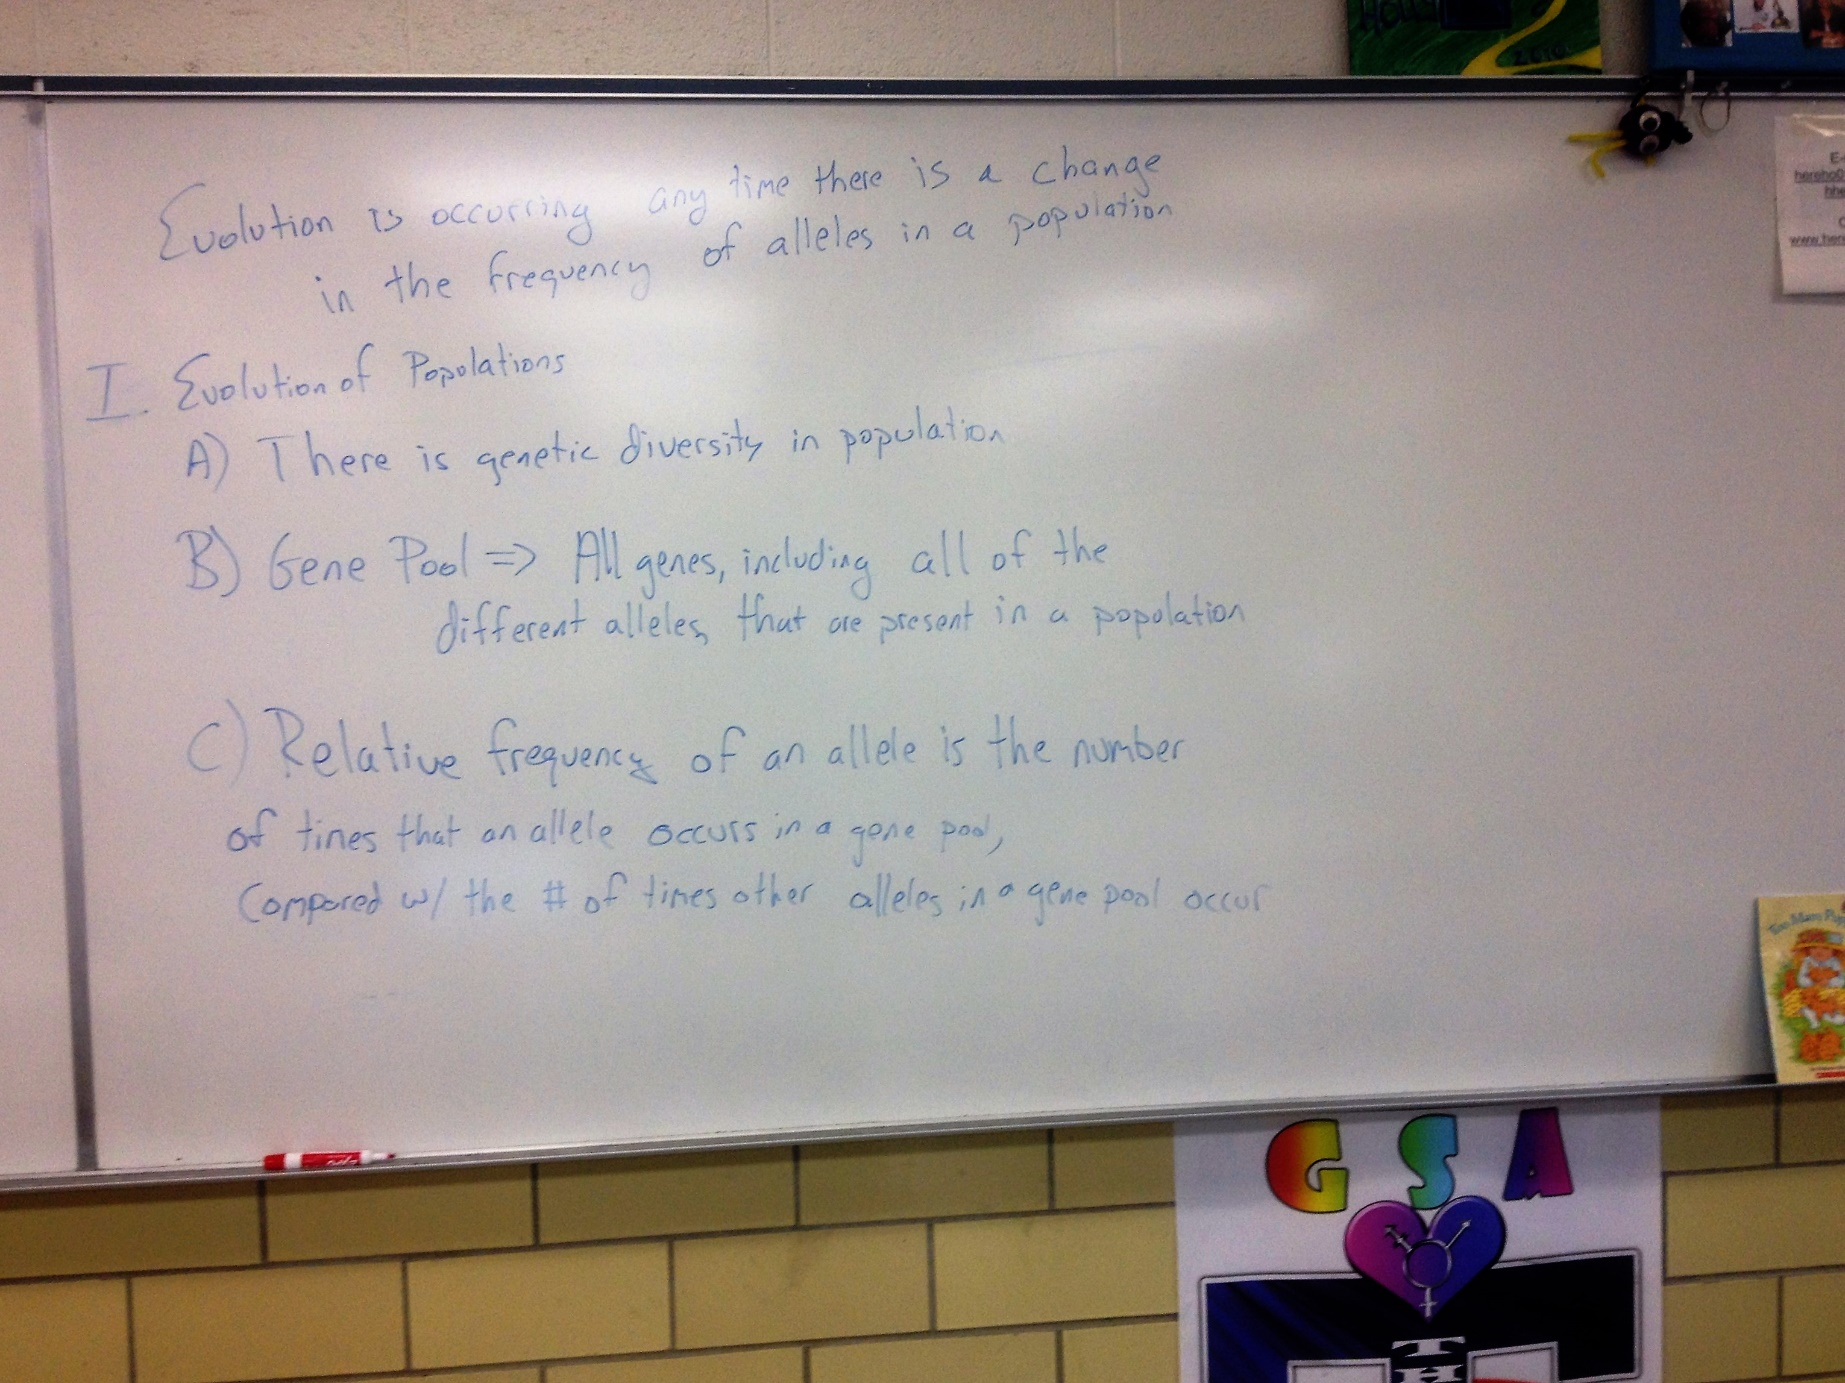 HOLLY
2010
Evolution is occurring any time there is a change
in the frequency of alleles in a population
I. Evolution of Populations
A) There is genetic diversity in population
B) Gene Pool => All genes, including all of the
different alleles, that are present in a population
C) Relative frequency of an allele is the number
of times that an allele occurs in a gene pool,
Compared w/ the # of times other alleles in a gene pool occur
Too Many
G S A